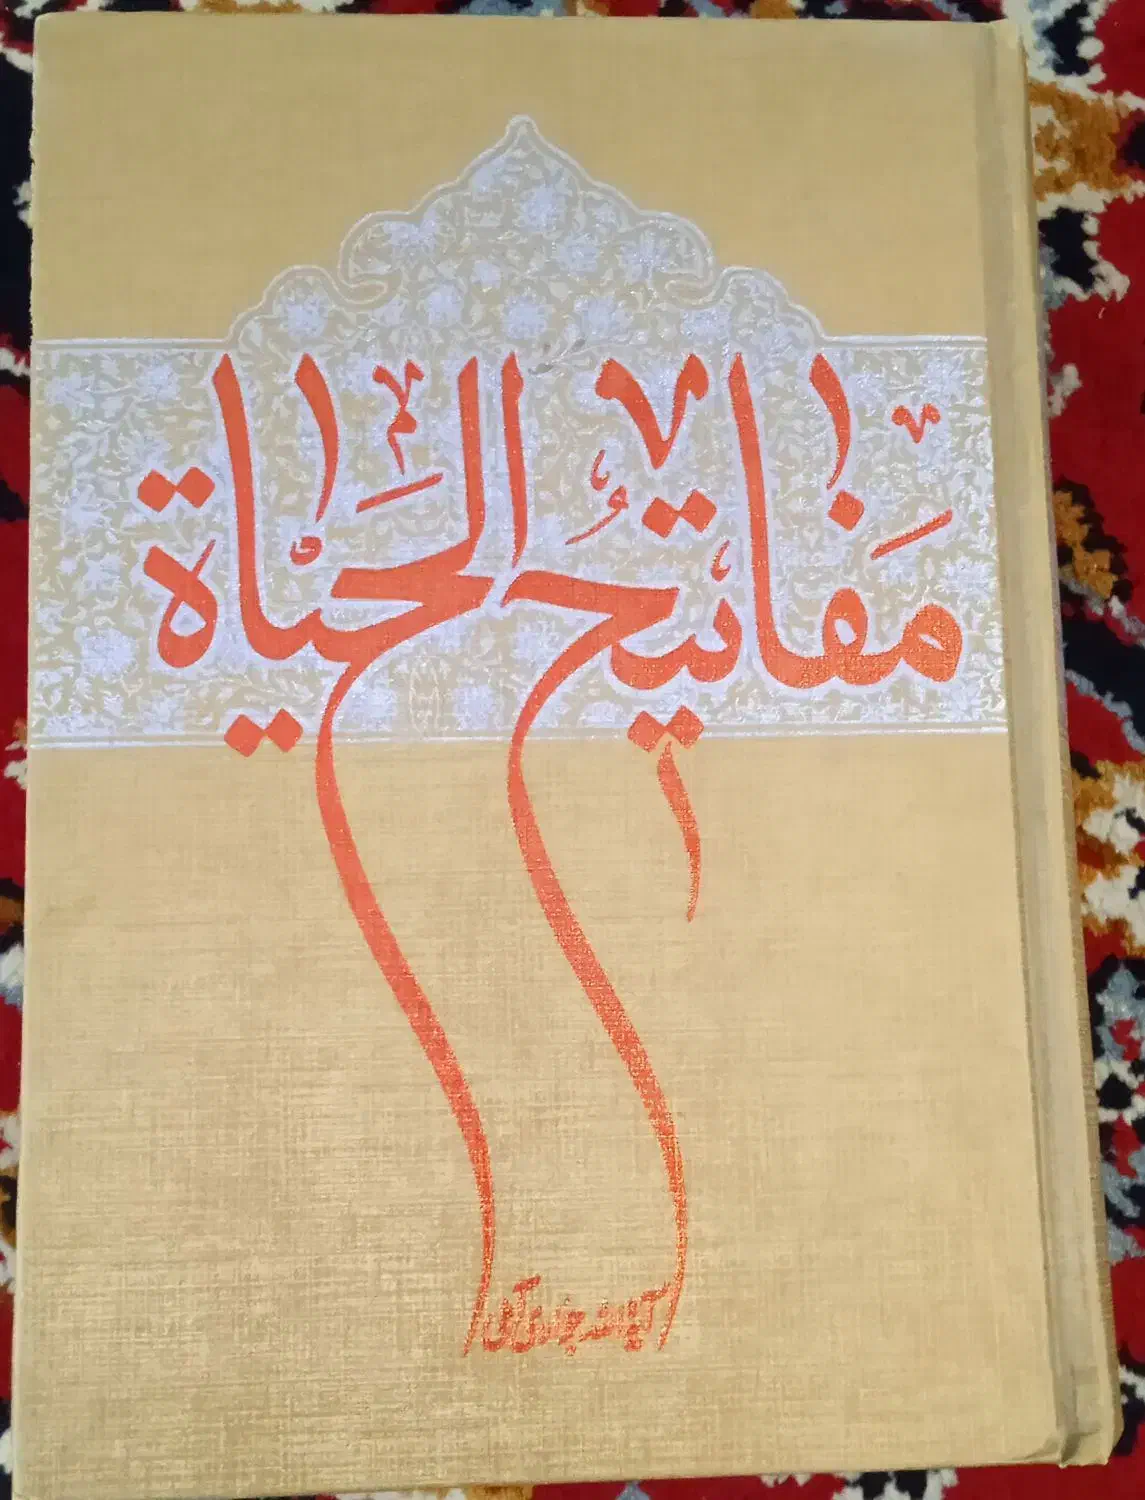 مَفاتیحُ الحَیاة
آیةالله جوادی آملی